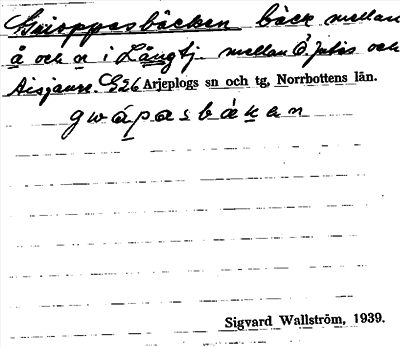 Guoppasbäcken bäck mellan
å och n i Långtj. mellan Ö. och
Aisjaure. E26 Arjeplogs sn och tg, Norrbottens län.
gwåpasbäkan
Sigvard Wallström, 1939.